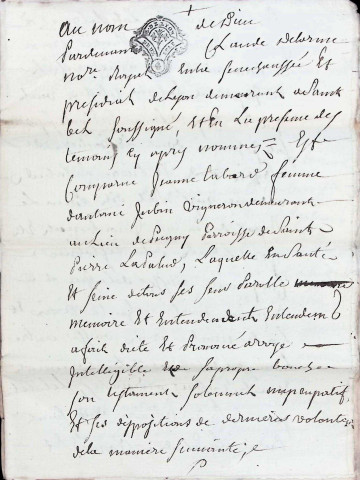 au nom de Dieu
Pardevant Claude Delorme
no.re Royal en la senechaussée Et
presidial de Lyon demeurant a Saint
bel soussigné Et En la presence des
temoins cy apres nommés Est
Comparue Jeanne Labard femme
d'antoine Vigneron demeurant
au Lieu de Parroisse de Saint
Pierre Lapalud, Laquelle En Santé
Et Seine de tous ses sens Parolle
memoire Et Entendement
a fait dicté Et Prononcé
Intelligible de sa propre bouche
son testament solennel nuncupatif,
Et ses dispositions de dernieres volontés
de la maniere suivante